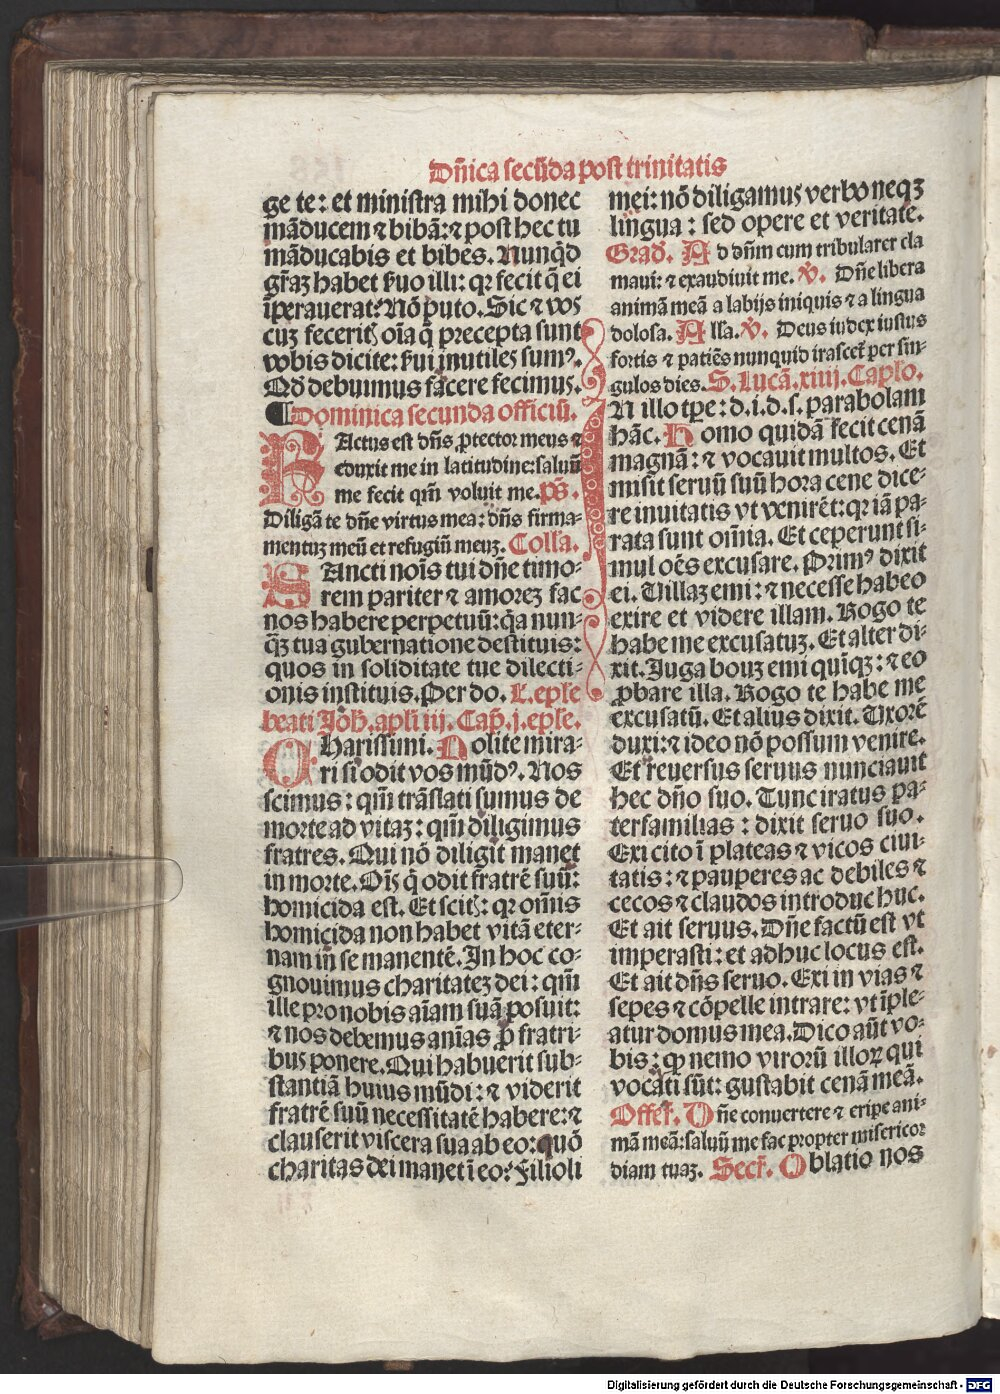 Dn̄ica secūda post trinitatis
ge te: et ministra mihi donec
māducem ⁊ bibā: ⁊ post hec tu
māducabis et bibes. Nunqͥd
gr̄aʒ habet ẜuo illi: qꝛ fecit q̄ ei
īperauerat? Nō puto. Sic ⁊ vos
cuʒ feceritꝭ oīa q̄ precepta sunt
vobis dicite: ẜui inutiles sumꝰ.
Qd̄ debuimus facere fecimus.
¶ Dominica secunda officiū.
FActus est dn̄s ꝓtector meus ⁊
eduxit me in latitudinē: saluū
me fecit qm̄ voluit me. p̄s.
Diligā te dn̄e virtus mea: dn̄s firma⸗
mentuʒ meū et refugiū meuʒ. Colla.
SAncti noīs tui dn̄e timo⸗
rem pariter ⁊ amoreʒ fac
nos habere perpetuū: q̄a nun⸗
q̄ʒ tua gubernatione destituis:
quos in soliditate tue dilecti⸗
onis instituis. Per do. L. ep̄le
beati Joh̄. apl̄i iij. Cap̄. j. ep̄le.
CHarissimi. Nolite mira⸗
ri si odit vos mūdꝰ. Nos
scimus: qm̄ trāslati sumus de
morte ad vitaʒ: qm̄ diligimus
fratres. Qui nō diligit manet
in morte. Oīs q̄ odit fratrē suū:
homicida est. Et scitꝭ: qꝛ om̄is
homicida non habet vitā eter⸗
nam in se manentē. In hoc co⸗
gnouimus charitateʒ dei: qm̄
ille pro nobis aīam suā posuit:
⁊ nos debemus anīas ꝓ fratri⸗
bus ponere. Qui habuerit sub⸗
stantiā huius mūdi: ⁊ viderit
fratrē suū necessitatē habere: ⁊
clauserit viscera sua ab eo: quō
charitas dei manet ī eo? Filioli
mei: nō diligamus verbo neqʒ
lingua: sed opere et veritate.
Grad̄. Ad dn̄m cum tribularer cla
maui: ⁊ exaudiuit me. v̄. Dn̄e libera
animā meā a labijs iniquis ⁊ a lingua
dolosa. Alla. v̄. Deus iudex iustus
fortis ⁊ patiēs nunquid irascet̄ per sin⸗
gulos dies. S. Lucā. xiiij. Caplo.
IN illo tp̄e: d. i. d. s. parabolam
hāc. Homo quidā fecit cenā
magnā: ⁊ vocauit multos. Et
misit seruū suū hora cene dice⸗
re inuitatis vt venirēt: qꝛ iā pa⸗
rata sunt om̄ia. Et ceperunt si⸗
mul oēs excusare. Primꝰ dixit
ei. Villaʒ emi: ⁊ necesse habeo
exire et videre illam. Rogo te
habe me excusatuʒ. Et alter di⸗
xit. Juga bouʒ emi quīqʒ: ⁊ eo
ꝓbare illa. Rogo te habe me
excusatū. Et alius dixit. Uxorē
duxi: ⁊ ideo nō possum venire.
Et reuersus seruus nunciauit
hec dn̄o suo. Tunc iratus pa⸗
terfamilias: dixit seruo suo.
Exi cito ī plateas ⁊ vicos ciui⸗
tatis: ⁊ pauperes ac debiles ⁊
cecos ⁊ claudos introduc huc.
Et ait seruus. Dn̄e factū est vt
imperasti: et adhuc locus est.
Et ait dn̄s seruo. Exi in vias ⁊
sepes ⁊ cōpelle intrare: vt īple⸗
atur domus mea. Dico aūt vo⸗
bis: ꝙ nemo virorū illoꝝ qui
vocati sūt: gustabit cenā meā.
Offer̄. Dn̄e conuertere ⁊ eripe ani⸗
mā meā: saluū me fac propter misericor
diam tuaʒ. Secr̄. Oblatio nos
Digitalisierung gefördert durch die Deutsche Forschungsgemeinschaft - DFG